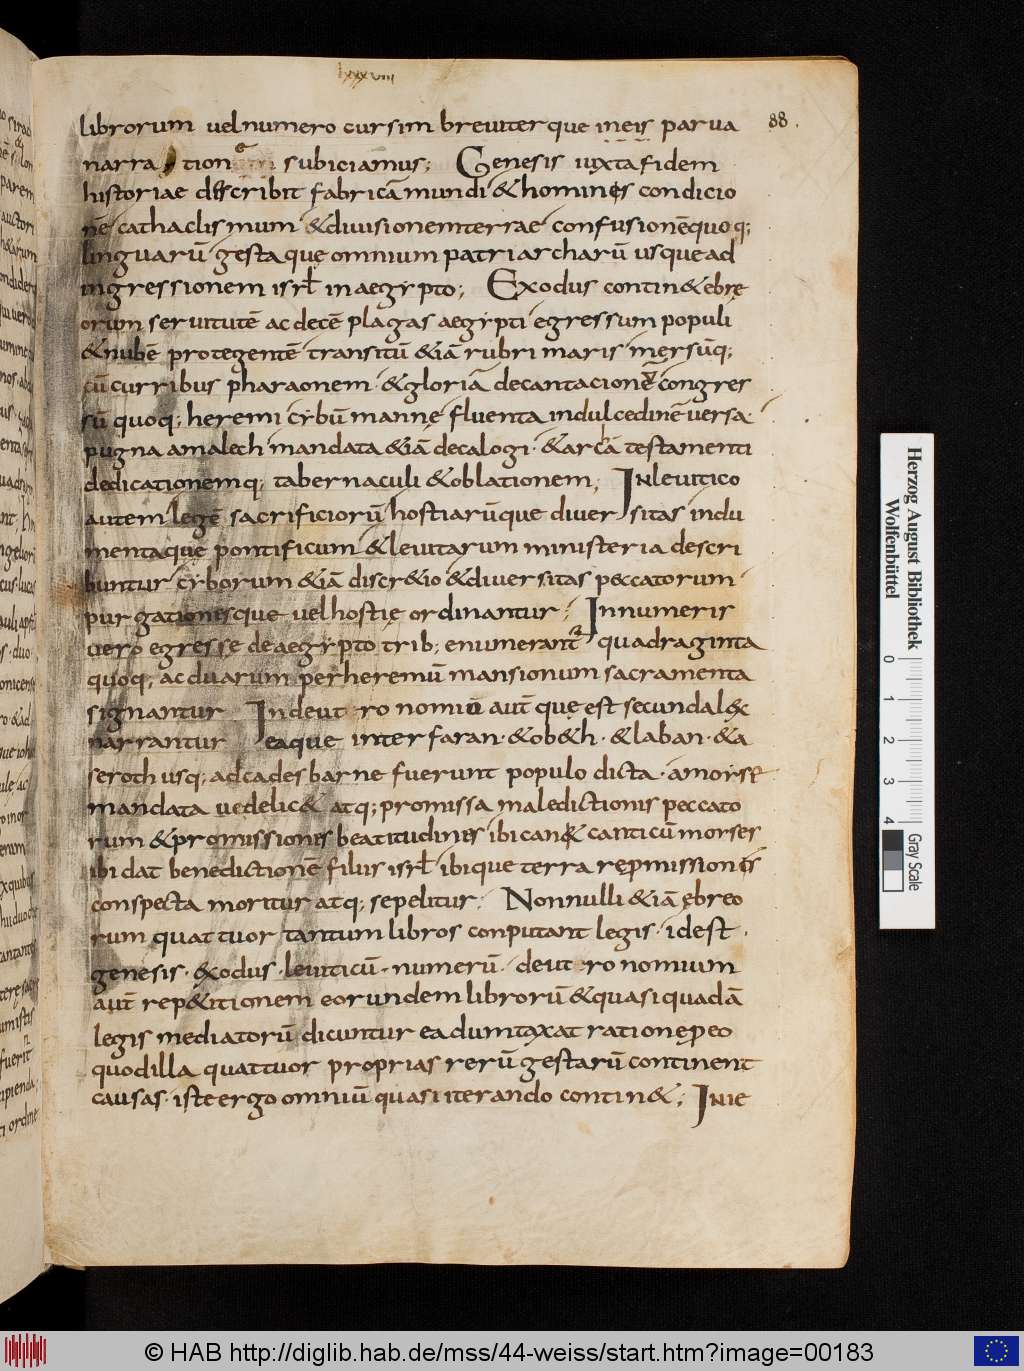 lxxxviii
librorum uel numero cursim breuiterque in eis parua
88.
narrationē subiciamus; Genesis iuxta fidem
historiae describit fabricā mundi & hominis condicio
nē cathaclismum & diuisionem terrae confusionēquoq;
linguarū gestaque omnium patriarcharū usque ad
ingressionem isrl̄ in aegypto; Exodus contin& ebrę
orum seruitutē ac decē plagas aegypti egressum populi
& nubē protegentē transitū &iā rubri maris mersūq;
cū curribus pharaonem · & gloriā decantacionē congres
sū quoq; heremi cybū mannę fluenta in dulcedinē uersa ·
pugna amalech mandata &iā decalogi · & arcā testamenti
dedicationemq; tabernaculi & oblationem; In leuitico
autem legē sacrificiorū hostiarūque diuersitas indu
mentaque pontificum & leuitarum ministeria descri
buntur cyborum &iā discr&io & diuersitas peccatorum
purgationisque uel hostię ordinantur; In numeris
uero egressę de aegypto trib; enumerant quadraginta
quoq; ac duarum per heremū mansionum sacramenta
signantur In deut ro nomiū aut̄ que est secunda l&x
narrantur eaque inter faran · & ob&h · & laban · & a
seroth usq; ad cades barne fuerunt populo dicta · a moyse
mandata uedelic& atq; promissa maledictionis peccato
rum & promissionis beatitudinis ibi can& canticū moyses
ibi dat benedictionē filiis isrl̄ ibique terra repmissionis
conspecta moritur atq; sepelitur; Nonnulli &iā ębreo
rum quattuor tantum libros conputant legis · id est ·
genesis · &xodus · leuiticū · numerū · deut ro nomium
aut̄ rep&itionem eorundem librorū & quasi quadā
legis mediatorū dicuntur ea dumtaxat ratione p eo
quod illa quattuor proprias rerū gestarū continent
causas · iste ergo omniū quasi iterando contin&; In ie
Herzog August Bibliothek
Wolfenbüttel
0 1 2 3 4
Gray Scale
© HAB http://diglib.hab.de/mss/44-weiss/start.htm?image=00183